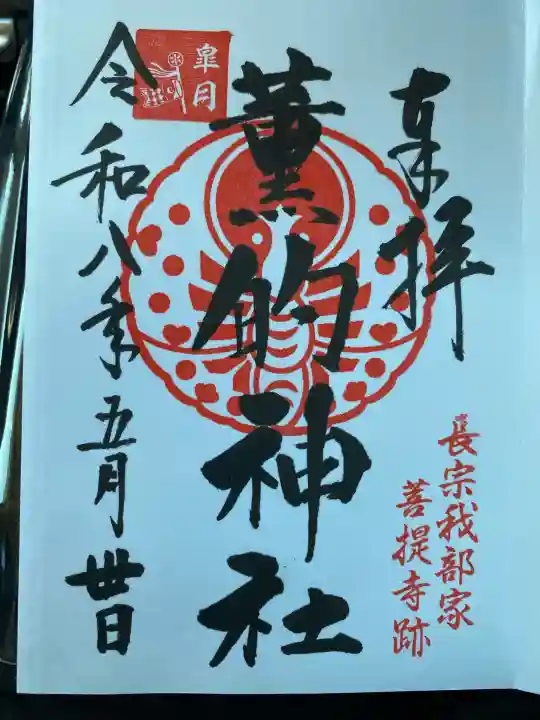 奉拝
長宗我部家
菩提寺跡
薫的神社
皐月
令和八季五月丗日